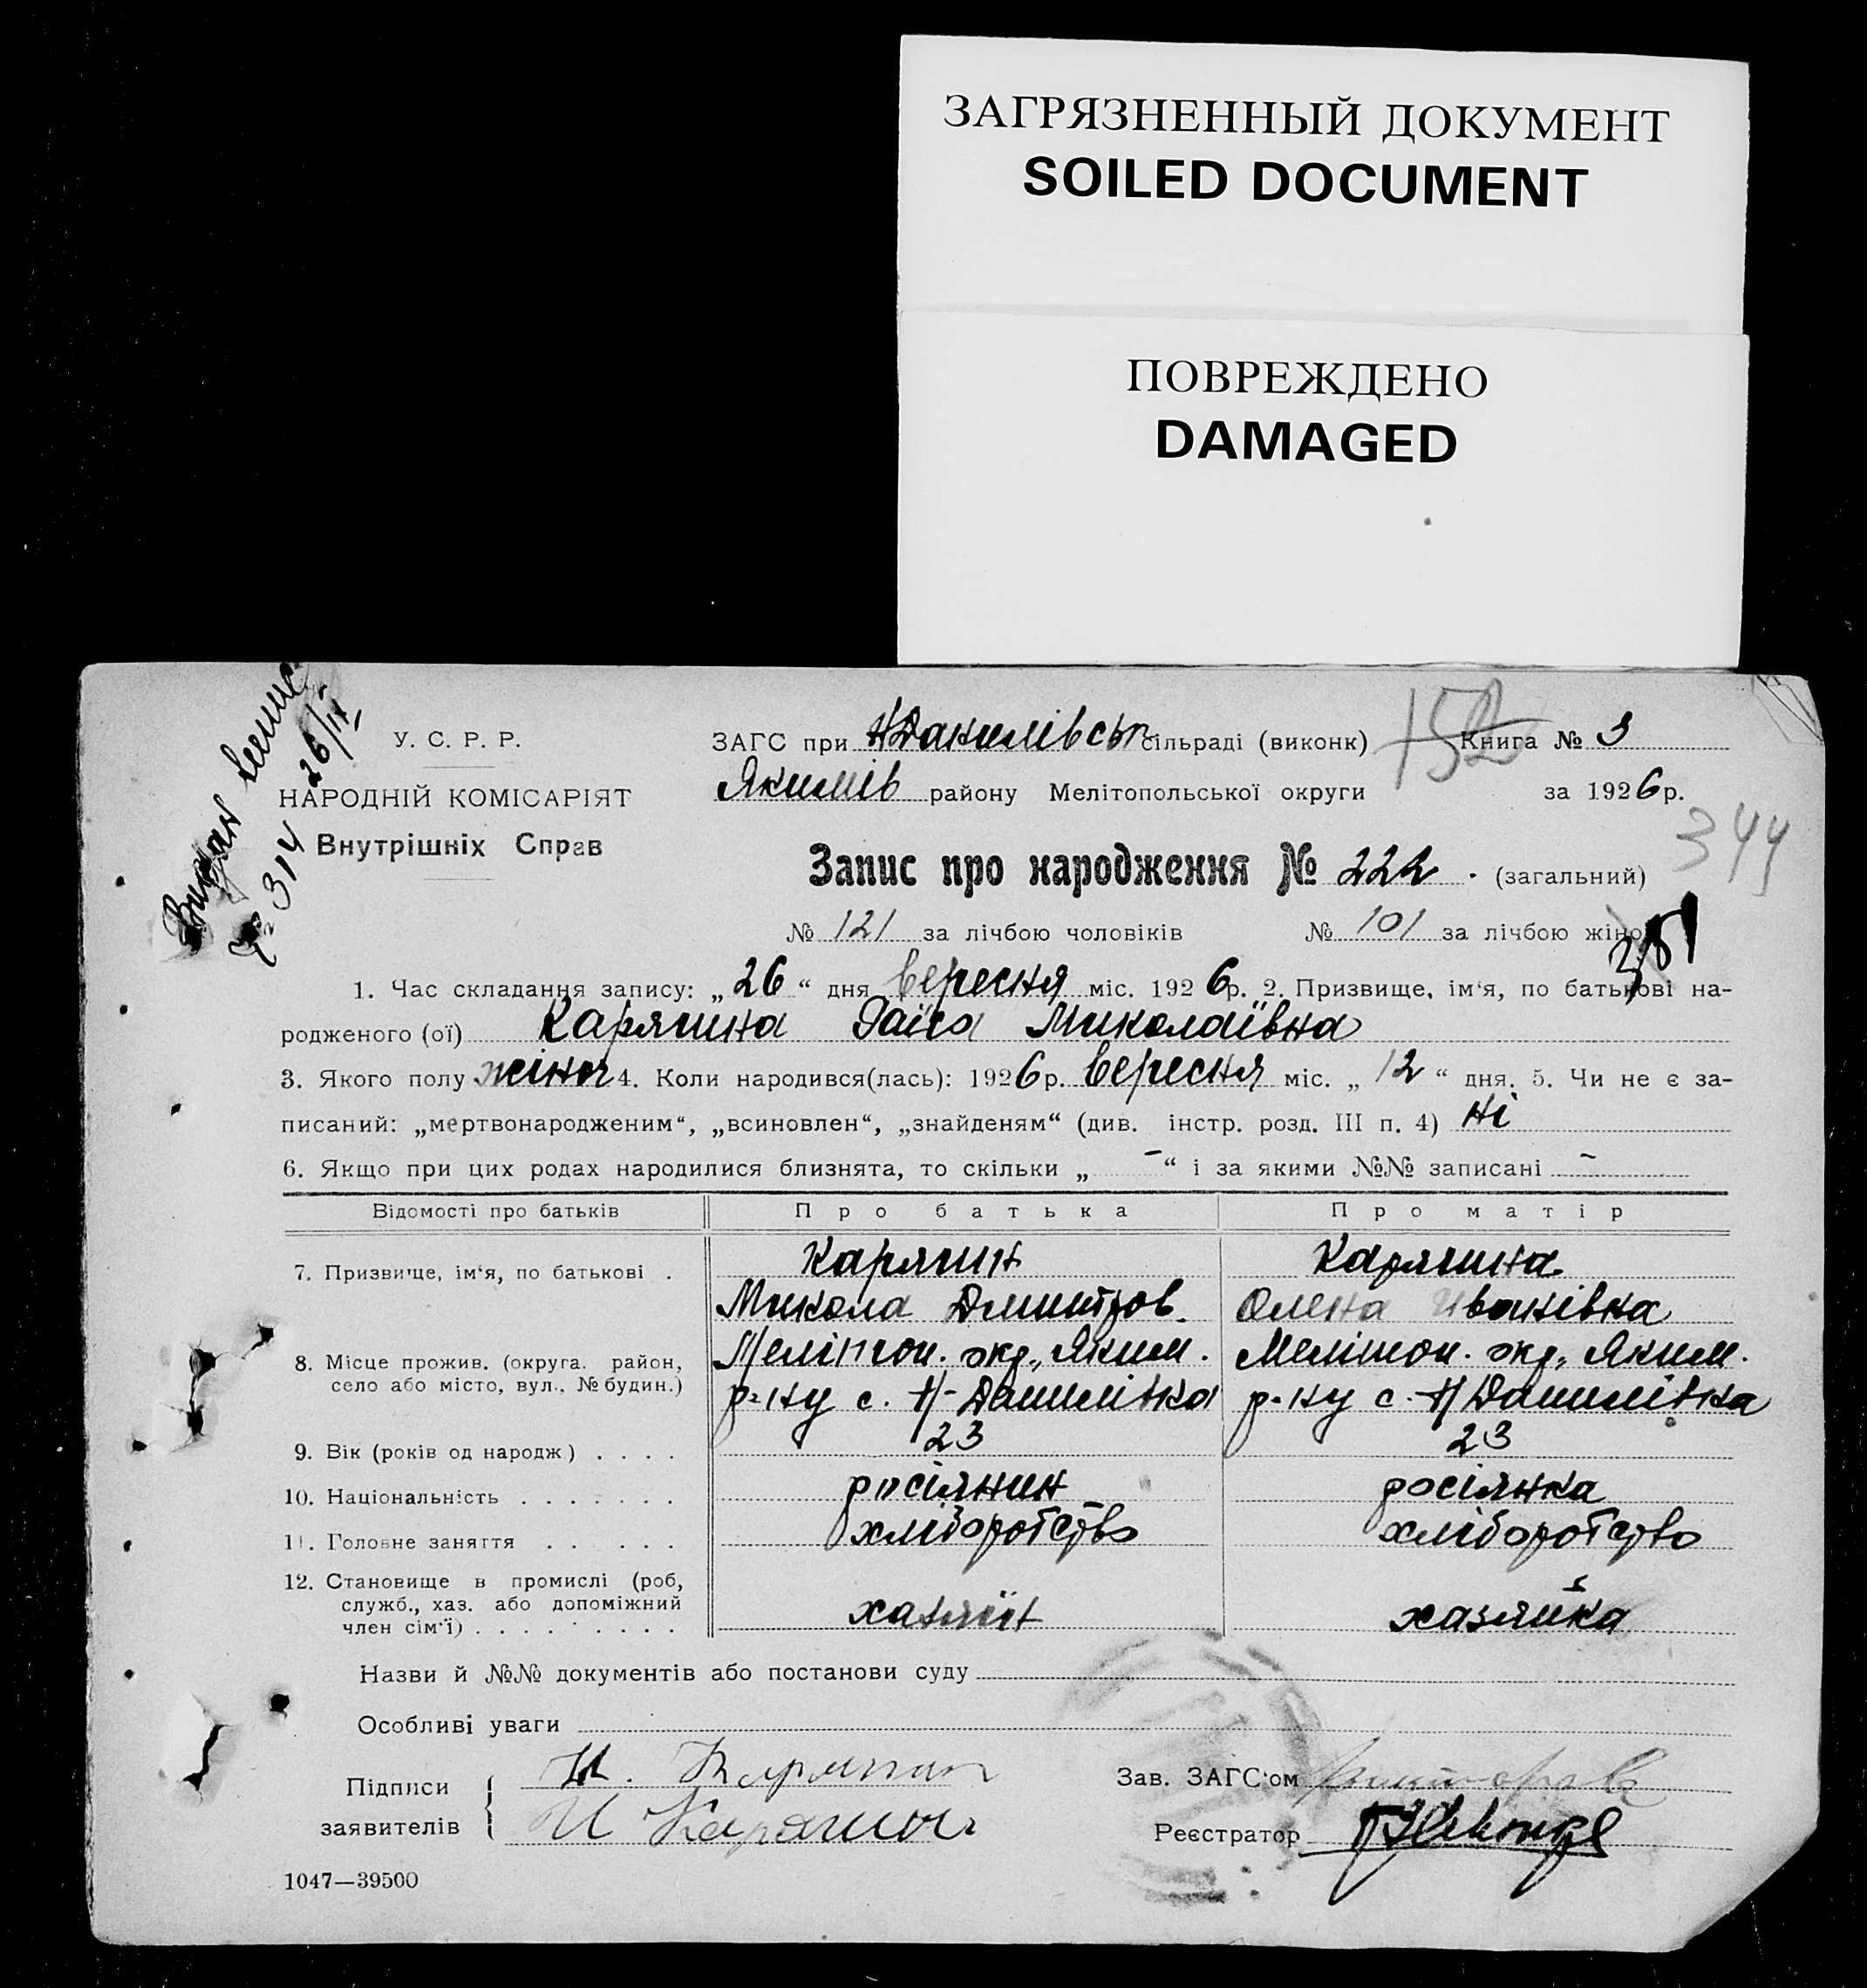 ЗАГРЯЗНЕННЫЙ ДОКУМЕНТ
SOILED DOCUMENT
ПОВРЕЖДЕНО
DAMAGED
№ 314 26/II
У. С. Р. Р.
НАРОДНІЙ КОМІСАРІЯТ
Внутрішніх Справ
152
ЗАГС при Н Данилівськ сільраді (виконк) Книга № 3
Якимів району Мелітопольської округи за 1926 р.
344
Запис про народження № 222. (загальний)
№ 121 за лічбою чоловіків № 101 за лічбою жінок
351
1. Час складання запису: „26“ дня вересня міс. 1926 р. 2. Призвище, ім‘я, по батькові на-
родженого (ої) Карягина Раїса Миколаївна
3. Якого полу жіноч 4. Коли народився(лась): 1926 р. вересня міс. „12“ дня. 5. Чи не є за-
писаний: „мертвонародженим“, „всиновлен“, „знайденям“ (див. інстр. розд. III п. 4) ні
6. Якщо при цих родах народилися близнята, то скільки „ - “ і за якими №№ записані -
Відомості про батьків Про батька Про матір
7. Призвище, ім‘я, по батькові . Карягин Карягина
Микола Дмитров. Олена Иванівна
8. Місце прожив. (округа, район, Меліпоп. окр., Яким. Мелітоп. окр., Яким.
село або місто, вул., № будин.) р-ну с. Н-Данилівка р-ну с. Н Данилівка
9. Вік (років од народж) . . . . 23 23
10. Національність . . . . . . . росіянин росіянка
11. Головне заняття . . . . . хліборобство хліборобство
12. Становище в промислі (роб,
служб., хаз. або допоміжний
член сім‘ї) . . . . . . . . . хазяїн хазяйка
Назви й №№ документів або постанови суду
Особливі уваги
Підписи Н. Карягин Зав. ЗАГС‘ом
заявителів И Карягин Реєстратор
1047—39500